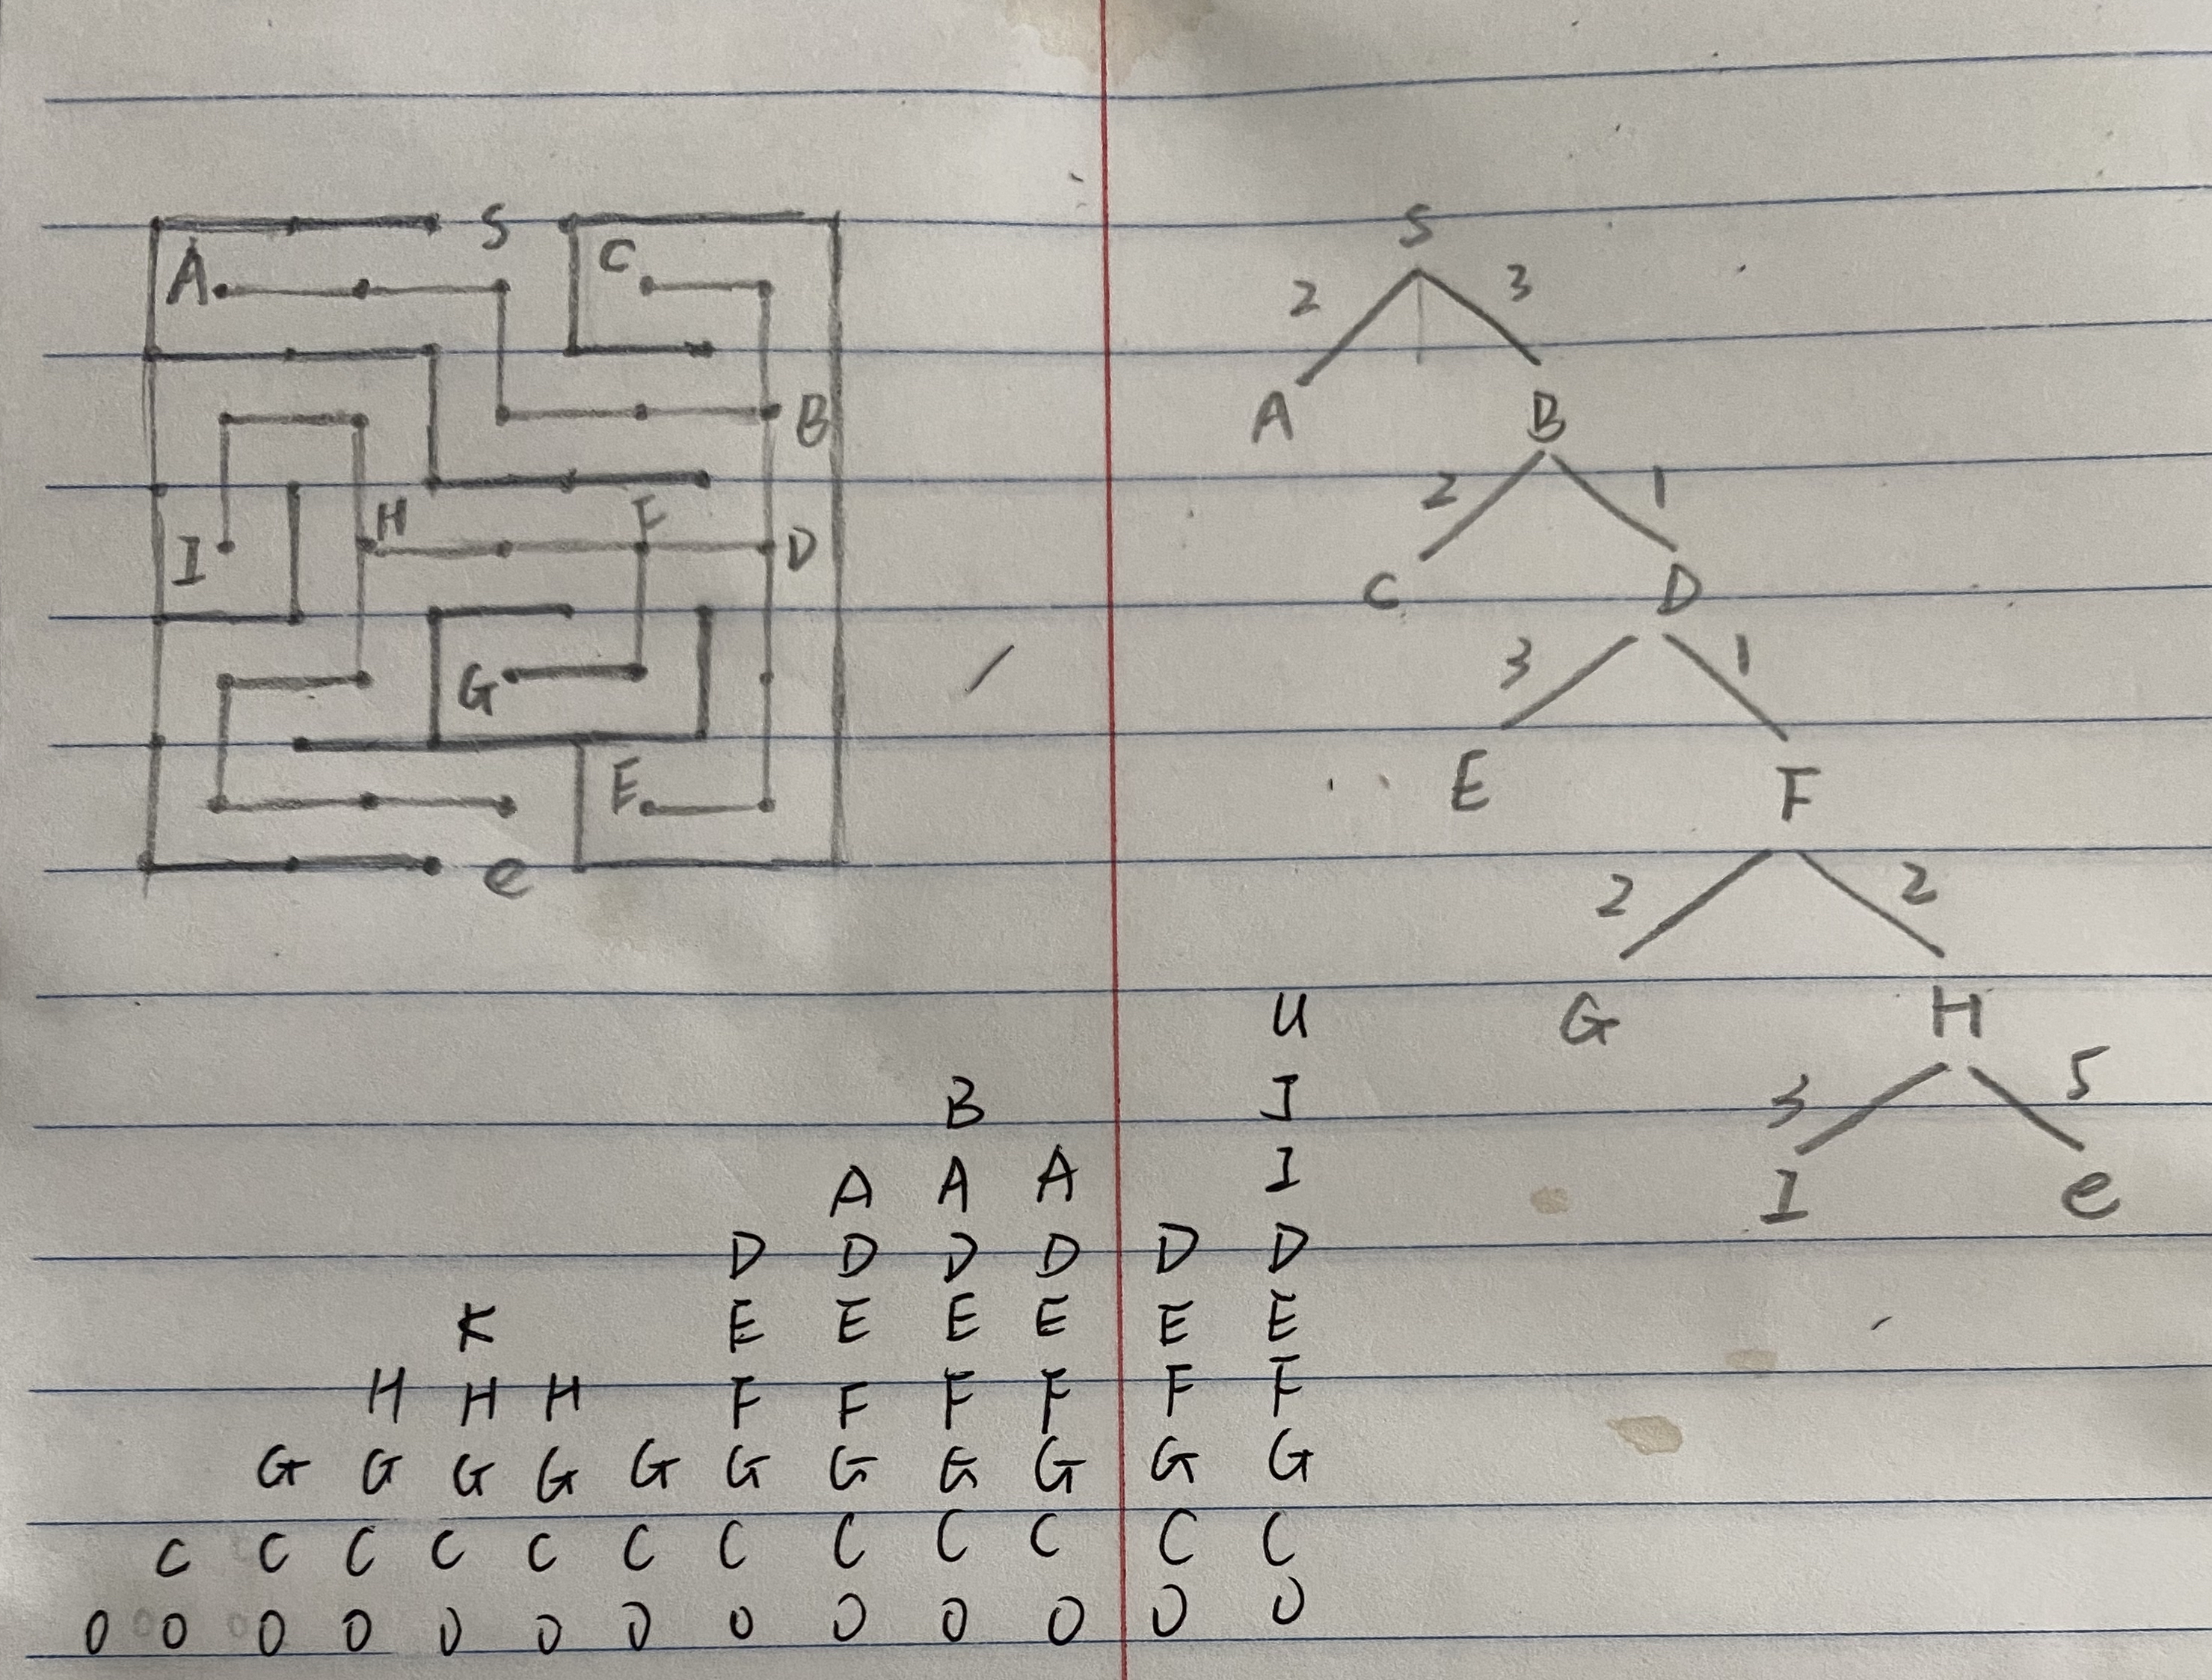 S
A C
B
H F
I D
G
E
e
S
2 3
A B
2 1
C D
3 1
E F
2 2
G H
3 5
I e
U
B J
A A A I
D D D D D D
K E E E E E E
H H H F F F F F F
G G G G G G G G G G G
C C C C C C C C C C C C
0 0 0 0 0 0 0 0 0 0 0 0 0